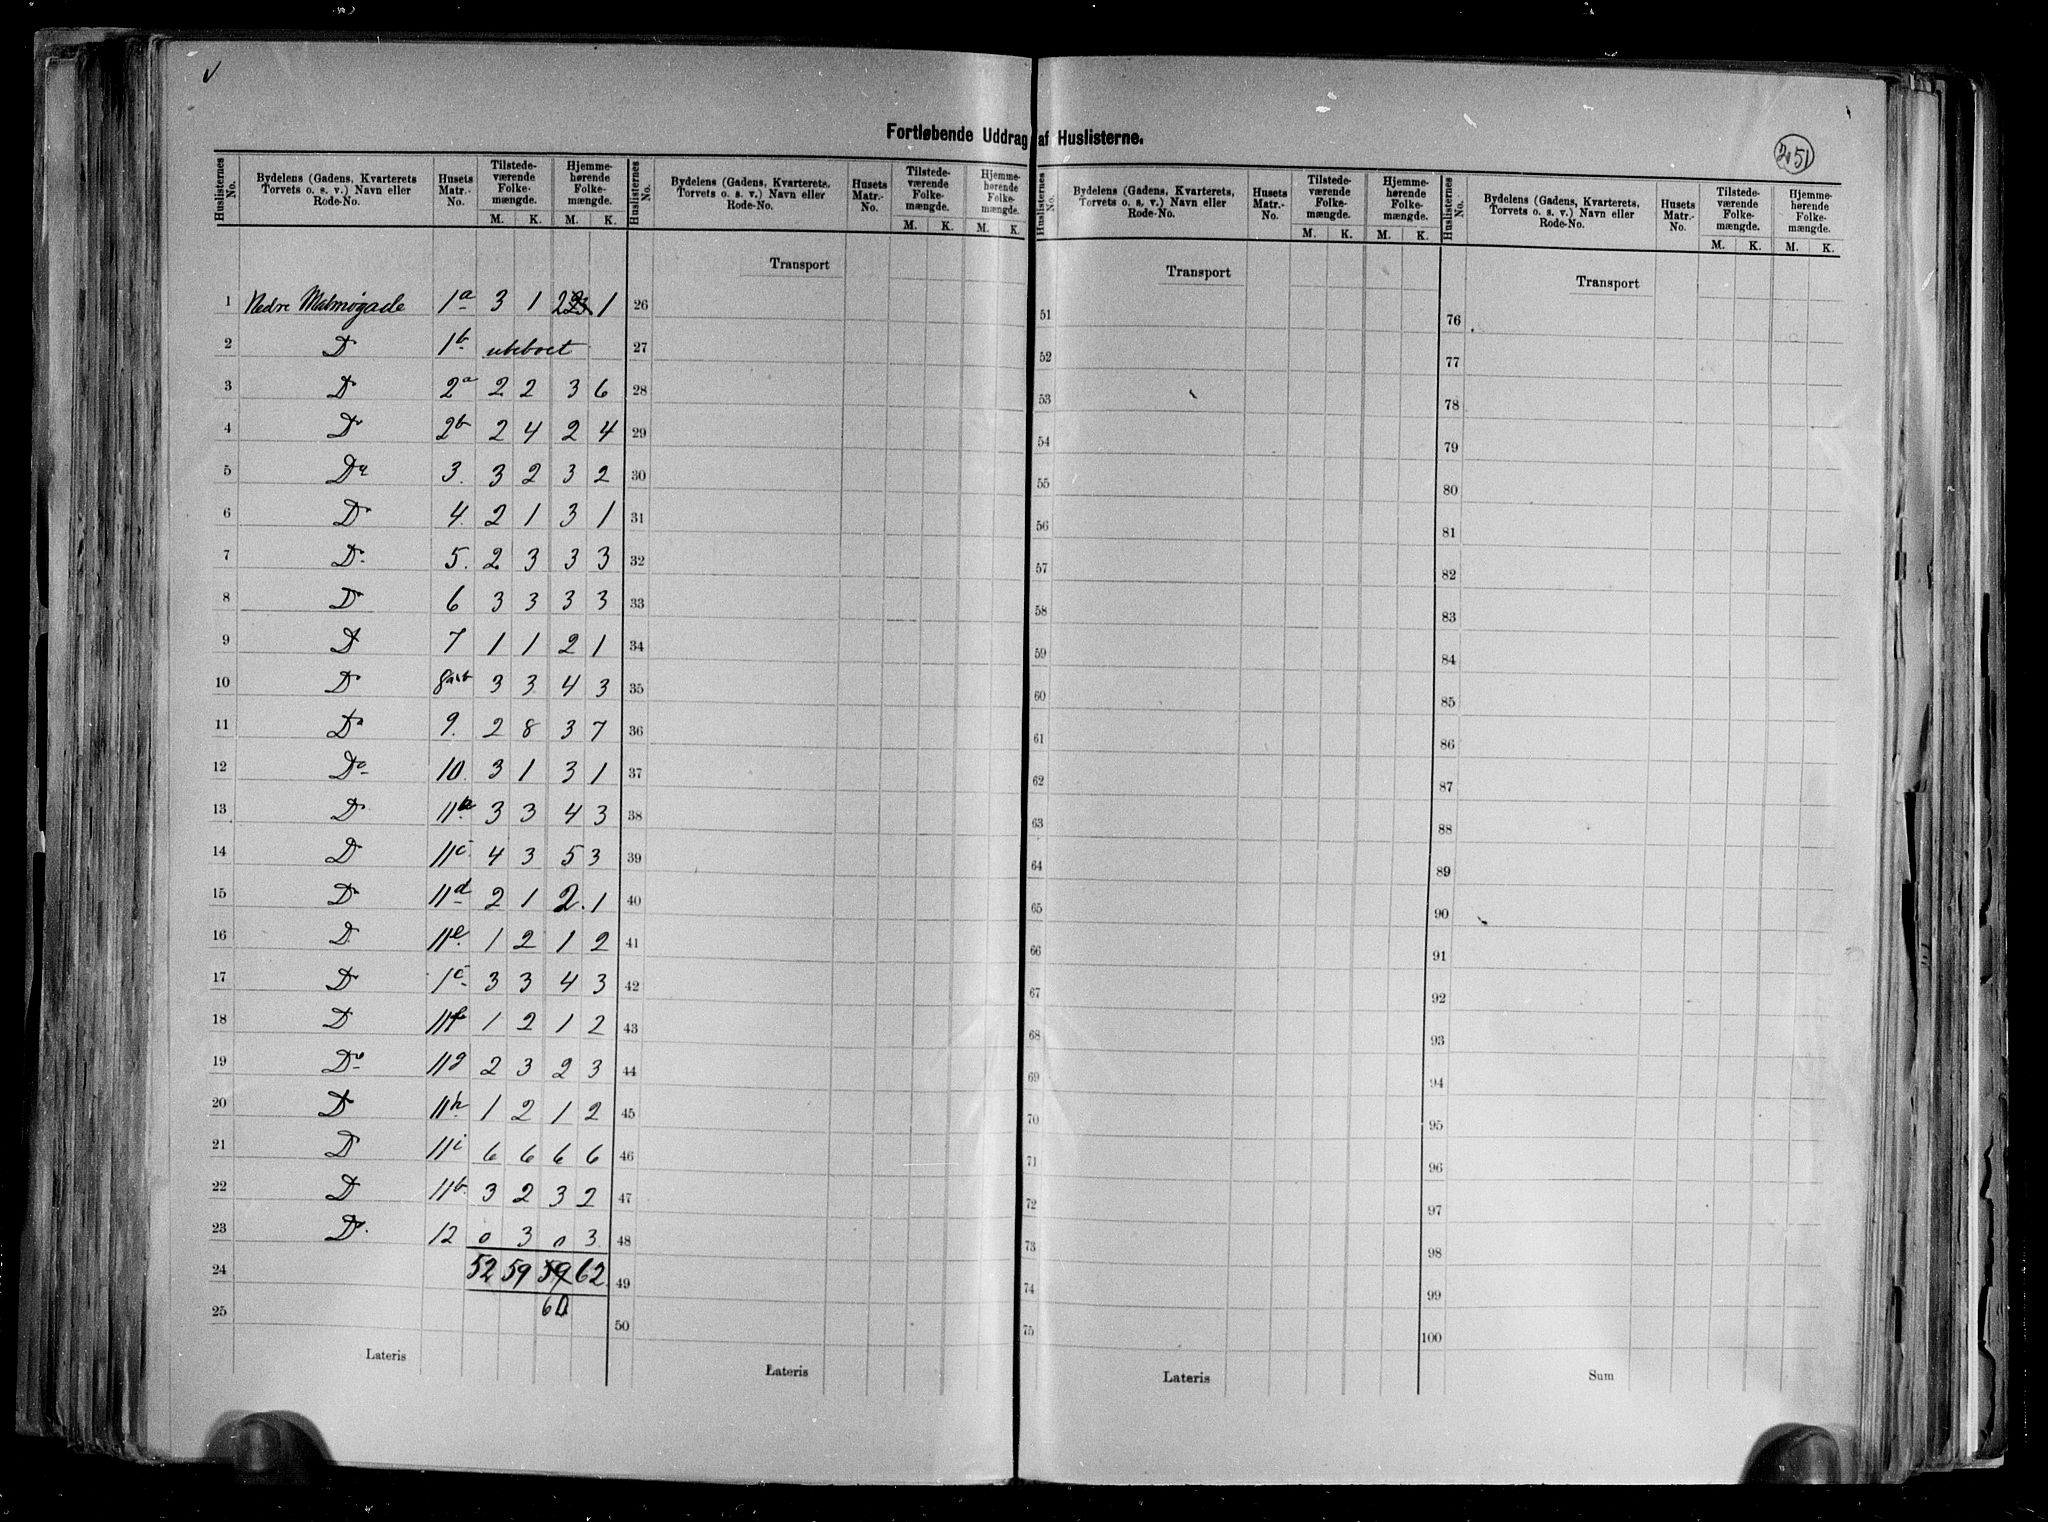 251
Fortløbende Uddrag af Huslisterne.
Huslisternes No. Bydelens (Gadens, Kvarterets Torvets o. s. v.) Navn eller Rode-No. Husets Matr.-No. Tilstede-værende Folke-mængde. M. K. Hjemme-hørende Folke-mængde. M. K.
1 Nedre Malmøgade 1a 3 1 2 1
2 D 1b ubeboet
3 D 2a 2 2 3 6
4 Do 2b 2 4 2 4
5 Do 3. 3 2 3 2
6 Do 4. 2 1 3 1
7 Do 5. 2 3 3 3
8 Do 6 3 3 3 3
9 D 7 1 1 2 1
10 Do 8a&b 3 3 4 3
11 Do 9. 2 8 3 7
12 Do 10. 3 1 3 1
13 Do 11a 3 3 4 3
14 D 11c. 4 3 5 3
15 Do 11d 2 1 2. 1
16 D. 11e. 1 2 1 2
17 Do 1c 3 3 4 3
18 Do 11f 1 2 1 2
19 Do 11g 2 3 2 3
20 Do 11h 1 2 1 2
21 Do 11i 6 6 6 6
22 Do 11b. 3 2 3 2
23 Do. 12 0 3 0 3
24 52 59 59 62
25 60
Lateris
Huslisternes No. Bydelens (Gadens, Kvarterets, Torvets o. s. v.) Navn eller Rode-No. Husets Matr.-No. Tilstede-værende Folke-mængde. M. K. Hjemme-hørende Folke-mængde. M. K.
Transport
26
27
28
29
30
31
32
33
34
35
36
37
38
39
40
41
42
43
44
45
46
47
48
49
50
Lateris
Huslisternes No. Bydelens (Gadens, Kvarterets, Torvets o. s. v.) Navn eller Rode-No. Husets Matr.-No. Tilstede-værende Folke-mængde. M. K. Hjemme-hørende Folke-mængde. M. K.
Transport
51
52
53
54
55
56
57
58
59
60
61
62
63
64
65
66
67
68
69
70
71
72
73
74
75
Lateris
Huslisternes No. Bydelens (Gadens, Kvarterets, Torvets o. s. v.) Navn eller Rode-No. Husets Matr.-No. Tilstede-værende Folke-mængde. M. K. Hjemme-hørende Folke-mængde. M. K.
Transport
76
77
78
79
80
81
82
83
84
85
86
87
88
89
90
91
92
93
94
95
96
97
98
99
100
Sum